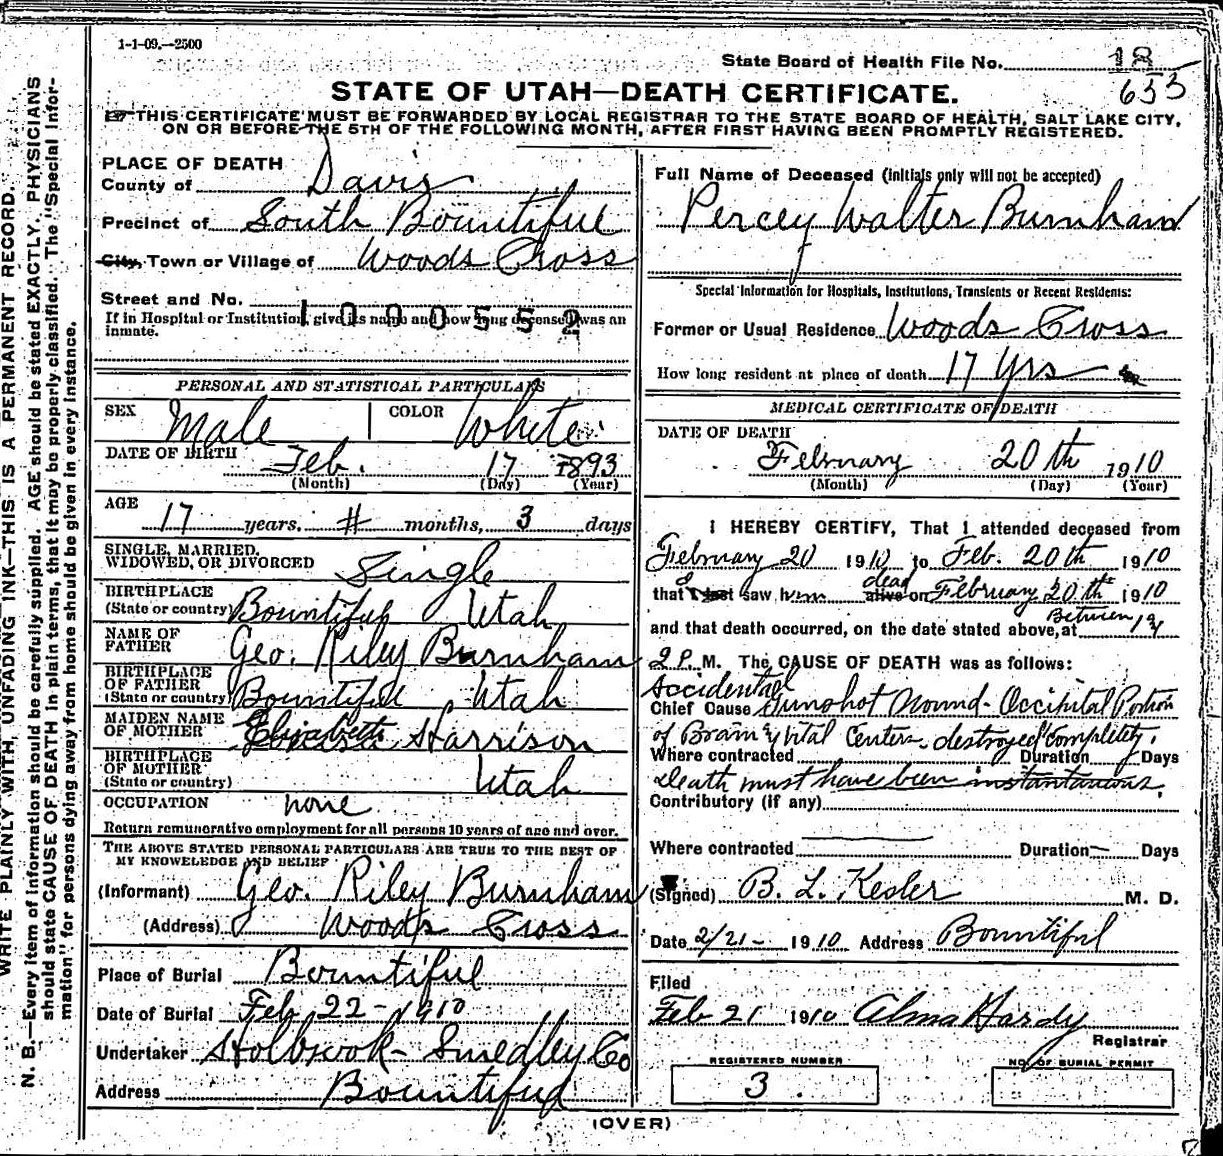 1-1-09.—2500
State Board of Health File No. 18
653
STATE OF UTAH—DEATH CERTIFICATE.
THIS CERTIFICATE MUST BE FORWARDED BY LOCAL REGISTRAR TO THE STATE BOARD OF HEALTH, SALT LAKE CITY,
ON OR BEFORE THE 5TH OF THE FOLLOWING MONTH, AFTER FIRST HAVING BEEN PROMPTLY REGISTERED.
WRITE PLAINLY WITH UNFADING INK—THIS IS A PERMANENT RECORD.
N. B.—Every item of information should be carefully supplied. AGE should be stated EXACTLY. PHYSICIANS
should state CAUSE OF DEATH in plain terms, that it may be properly classified. The "Special Infor-
mation" for persons dying away from home should be given in every instance.
PLACE OF DEATH
County of Davis
Precinct of South Bountiful
City, Town or Village of Woods Cross
Street and No.
1000552
If in Hospital or Institution, give its name and how long deceased was an
inmate.
PERSONAL AND STATISTICAL PARTICULARS
SEX Male COLOR White
DATE OF BIRTH Feb. 17 1893
(Month) (Day) (Year)
AGE 17 years, months, 3 days
SINGLE, MARRIED,
WIDOWED, OR DIVORCED Single
BIRTHPLACE
(State or country) Bountiful Utah
NAME OF
FATHER Geo. Riley Burnham
BIRTHPLACE
OF FATHER
(State or country) Bountiful, Utah
MAIDEN NAME
OF MOTHER Elizabeth Harrison
BIRTHPLACE
OF MOTHER
(State or country) Utah
OCCUPATION none
Return remunerative employment for all persons 10 years of age and over.
THE ABOVE STATED PERSONAL PARTICULARS ARE TRUE TO THE BEST OF
MY KNOWLEDGE AND BELIEF
(Informant) Geo. Riley Burnham
(Address) Woods Cross
Place of Burial Bountiful
Date of Burial Feb 22 - 1910
Undertaker Holbrook - Smedley Co
Address Bountiful
Full Name of Deceased (initials only will not be accepted)
Percey Walter Burnham
Special Information for Hospitals, Institutions, Transients or Recent Residents:
Former or Usual Residence Woods Cross
How long resident at place of death 17 Yrs
MEDICAL CERTIFICATE OF DEATH
DATE OF DEATH
February 20th 1910
(Month) (Day) (Year)
I HEREBY CERTIFY, That I attended deceased from
February 20 1910 to Feb. 20th 1910
that I last saw him alive dead on February 20th 1910
and that death occurred, on the date stated above, at Between 1 &
2 P. M. The CAUSE OF DEATH was as follows:
Accidental
Chief Cause Gunshot Wound - Occipital Portion
of Brain & Vital Centers destroyed completly.
Where contracted Duration Days
Death must have been instantaneous.
Contributory (if any)
Where contracted Duration Days
(Signed) B. L. Kesler M. D.
Date 2/21 - 1910 Address Bountiful
Filed
Feb 21 1910 Alma Hardy
Registrar
REGISTERED NUMBER
3
NO. OF BURIAL PERMIT
(OVER)